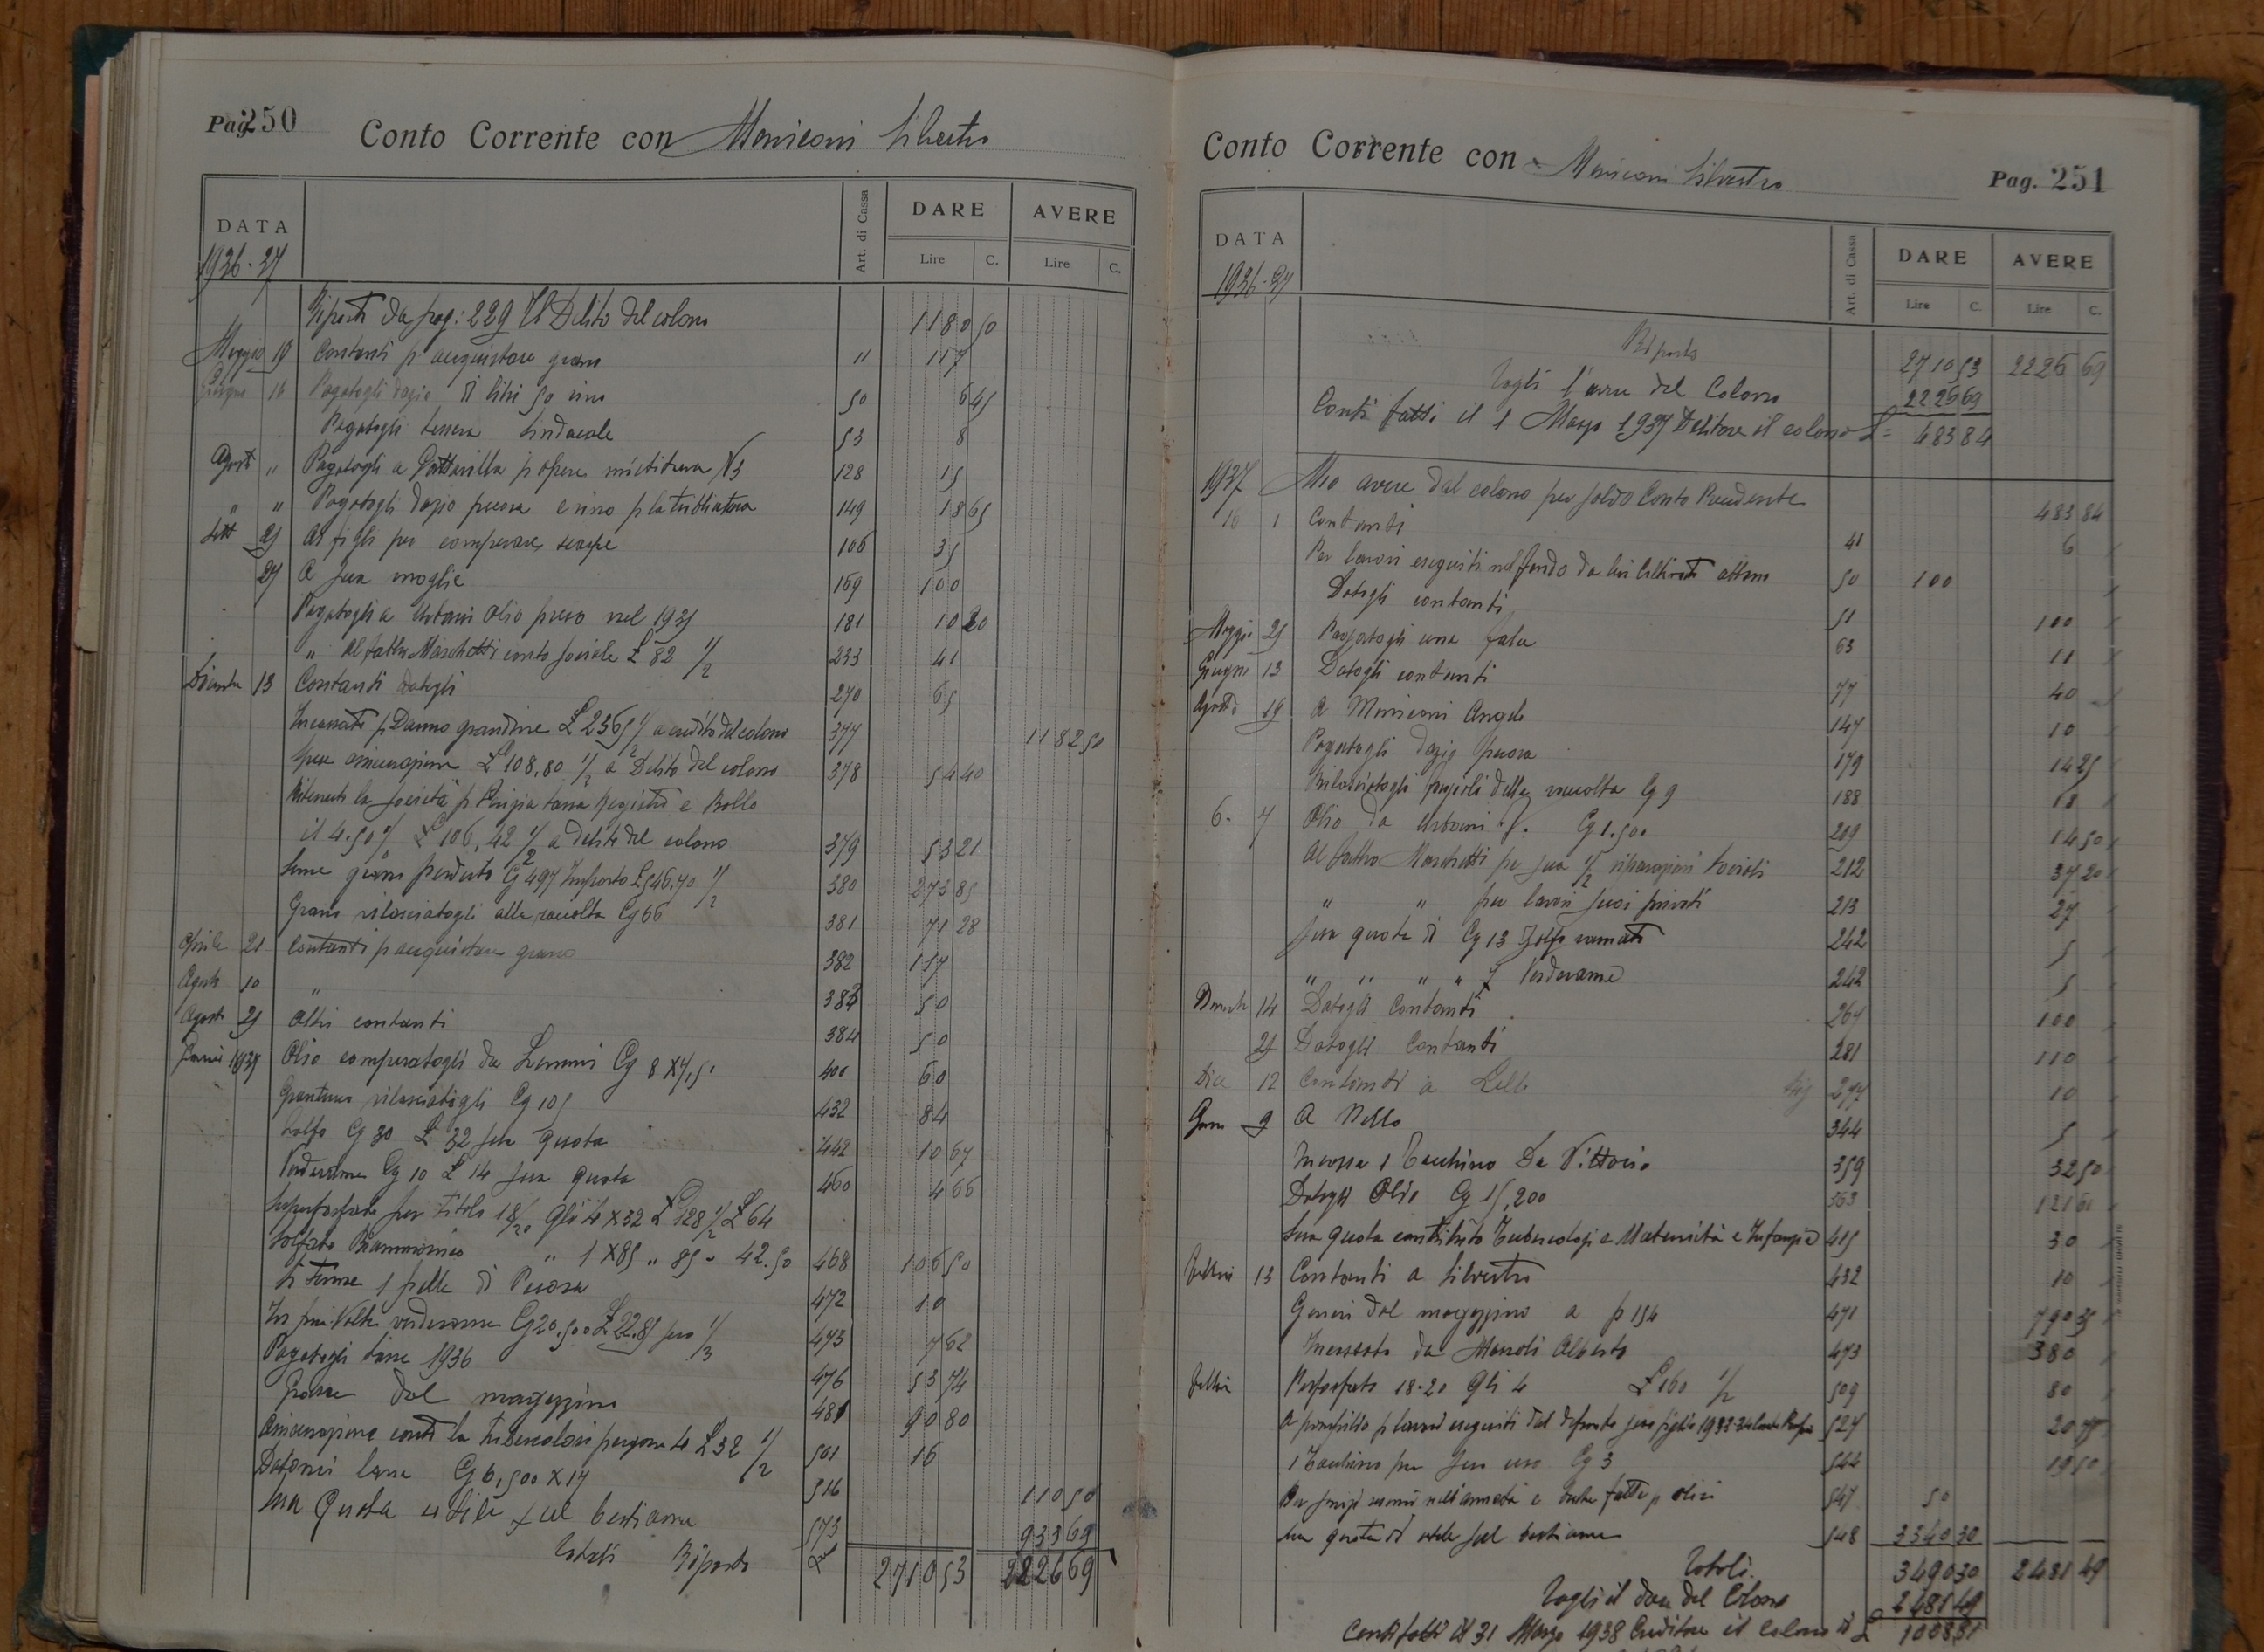 Pag. 250
Conto Corrente con Moriconi Silvestro
DATA
Art. di Cassa
DARE
AVERE
Lire C. Lire C.
1936-37
Riporto da pag: 229 Il Debito del colono 1180 50
Maggio 19 Contanti p acquistare grano 11 117
Giugno 16 Pagatogli dazio di litri 50 vino 50 6 45
Pagatogli tessera Sindacale 53 8
Agosto " Pagatogli a p opere mietitura N 3 128 15
" " Pagatogli dazio pecora e vino p la trebbiatura 149 18 65
Sett 25 Ai figli per comperare scarpe 106 35
27 A sua moglie 169 100
Pagatogli a Urbani olio preso nel 1935 181 10 20
" Al fabbro Marchetti conto sociale £ 82 1/2 233 41
Dicembre 13 Contanti datogli 270 65
Incassato p Danno grandine £ 2365 1/2 a credito del colono 377 1182 50
Spese assicurazione £ 108,80 1/2 a Debito del colono 378 54 40
Ritenuti la Società p tassa Registro e Bollo
il 4.50% £ 106,42 1/2 a debito del colono 379 53 21
Seme grano perduto Cg 497 Importo £ 546.70 1/2 380 273 85
Grano rilasciatogli alla raccolta Cg 66 381 71 28
Aprile 21 Contanti p acquistare grano 382 117
Agosto 10 " 383 50
Agosto 25 Altri contanti 384 50
1937 Olio comperatogli da Cg 8 X 7,5 400 60
Granturco rilasciatogli Cg 105 432 84
Solfo Cg 30 £ 32 sua quota 442 10 67
Verderame Cg 10 £ 14 sua quota 460 4 66
Superfosfato per titolo 18/20 Qli 4 X 32 £ 128 1/2 £ 64
Solfato Biammonico " 1 X 85 " 85 - 42.50 468 106 50
Si tenne 1 pelle di Pecora 472 10
verderame Cg 20.500 £ 22.85 suo 1/3 473 7 62
Pagatogli tasse 1936 476 53 74
dal magazzino 481 90 80
Assicurazione contro la tubercolosi persone 4 £ 32 1/2 501 16
Datomi lana Cg 6,500 X 17 516 110 50
Sua Quota utile sul bestiame 573 933 69
Totali Riporto 2710 53 2226 69
Conto Corrente con Moriconi Silvestro
Pag. 251
DATA
Art. di Cassa
DARE
AVERE
Lire C. Lire C.
1936-37
Riporto 2710 53 2226 69
Togli l'avere del Colono 2226 69
Conti fatti il 1 Marzo 1937 Debitore il colono £ = 483 84
1937 Mio avere dal colono per saldo Conto Precedente 483 84
16 1 Contanti 41 6
Per lavori eseguiti nel fondo da lui 50 100
Datogli contanti 51 100
Maggio 25 Pagatogli una falce 63 11
Giugno 13 Datogli contanti 77 40
Agosto 19 A Moriconi Angelo 147 10
Pagatogli dazio pecora 179 14 25
Rilasciatogli fagioli della raccolta Cg 9 188 18
6. 7 Olio da Urbani Cg 1.500 209 14 50
Al fabbro Marchetti per sua 1/2 riparazioni Sociali 212 37 20
" " per lavori suoi privati 213 27
Sua quota di Cg 13 Zolfo ramato 242 5
" " " " Verderame 242 5
14 Datogli Contanti 267 100
25 Datogli Contanti 281 110
Dice 12 Contanti a Lello 277 10
Genn 9 A Nello 344 5
1 Tacchino Da Vittorio 359 32 50
Datogli Olio Cg 15,200 363 121 60
Sua quota contributo Tubercolosi e Maternità e Infanzia 415 30
13 Contanti a Silvestro 432 10
Generi dal magazzino a p 154 471 790 35
Incassato da Alberto 473 380
Perfosfato 18-20 Qli 4 £ 160 1/2 509 80
p lavori eseguiti dal defunto suo figlio 1933-34 527
1 Tacchino per suo uso Cg 3 544 19 50
547 50
Sua quota di utile sul bestiame 548 3340 30
Totali 3490 30 2481 49
Togli il dare del Colono 2481 49
Conti fatti il 31 Marzo 1938 Creditore il Colono di £ 1008 81